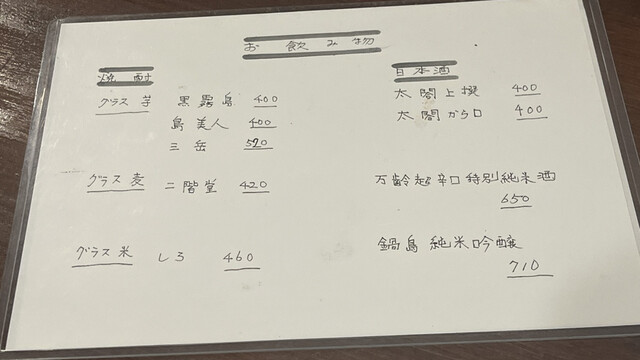 お飲み物
焼酎
グラス 芋 黒霧島 400
島美人 400
三岳 520
グラス 麦 二階堂 420
グラス 米 しろ 460
日本酒
太閤上撰 400
太閤から口 400
万齢超辛口特別純米酒
650
鍋島 純米吟醸
710